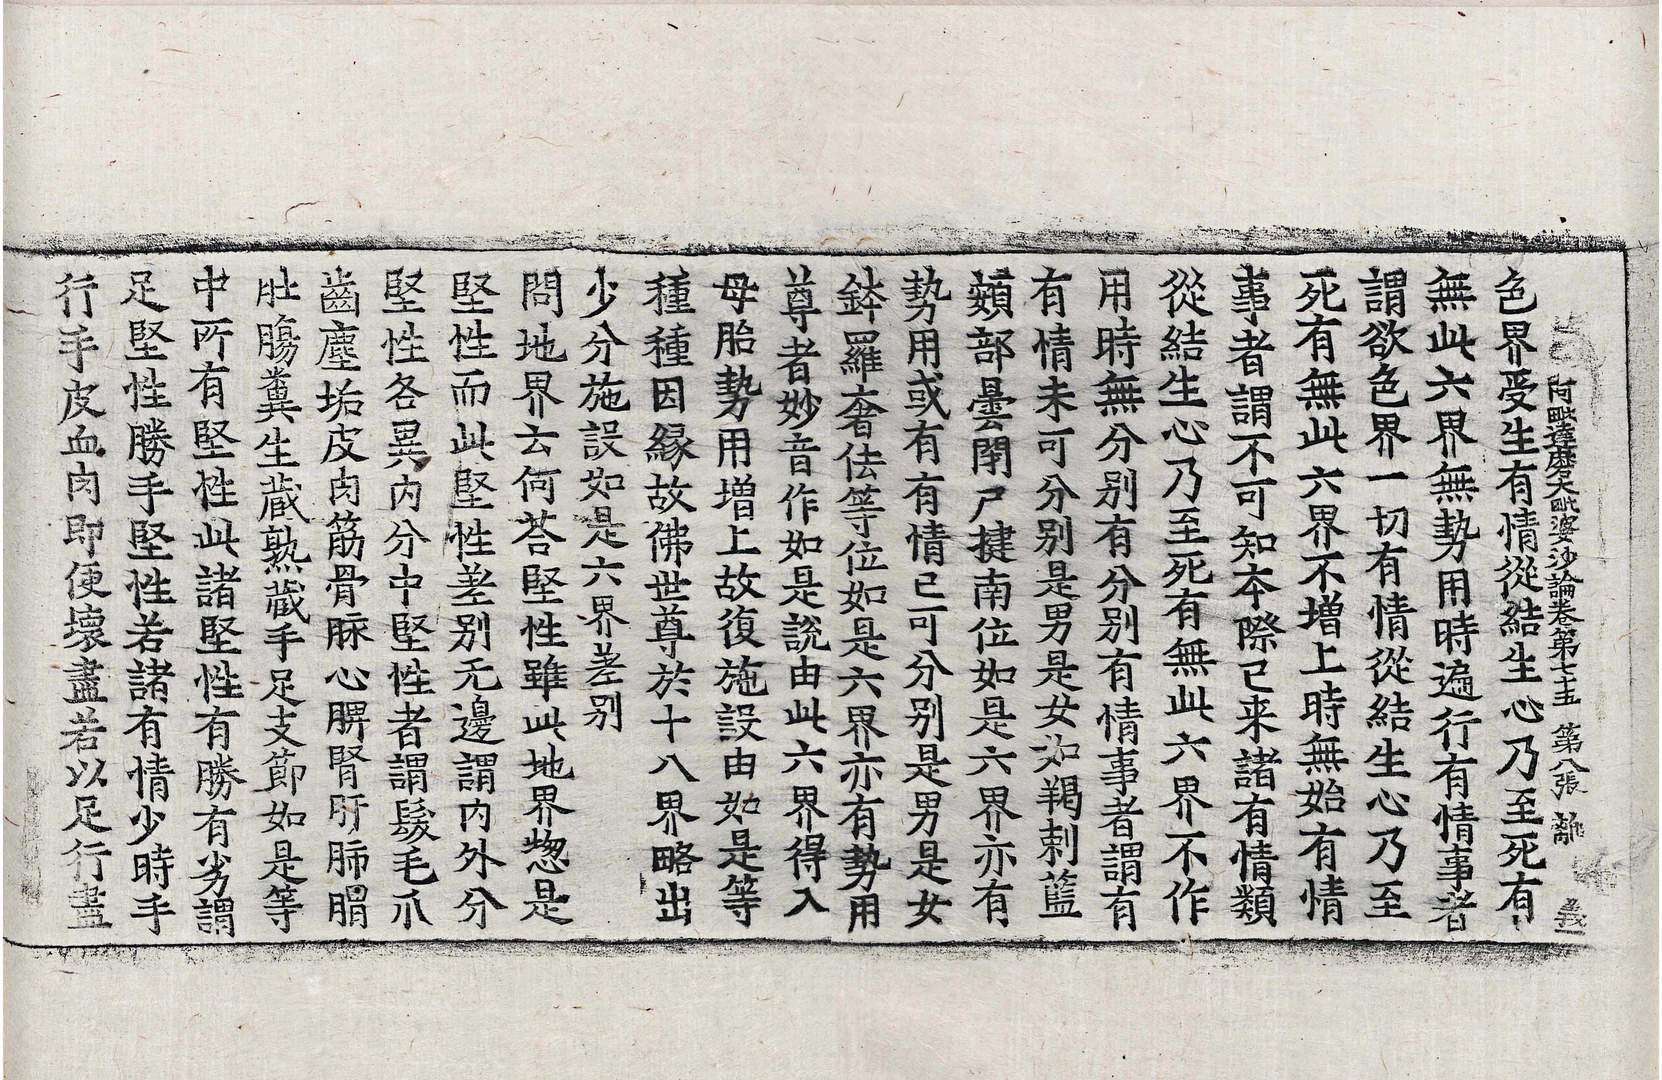 阿毗達磨大毗婆沙論卷第七十五 第八張 離 義
色界受生有情從結生心乃至死有
無此六界無勢用時遍行有情事者
謂欲色界一切有情從結生心乃至
死有無此六界不增上時無始有情
事者謂不可知本際已来諸有情類
從結生心乃至死有無此六界不作
用時無分別有分別有情事者謂有
有情未可分別是男是女如羯剌藍
頞部曇閉尸揵南位如是六界亦有
勢用或有有情已可分別是男是女
鉢羅奢佉等位如是六界亦有勢用
尊者妙音作如是說由此六界得入
母胎勢用增上故復施設由如是等
種種因緣故佛世尊於十八界略出
少分施設如是六界差別
問地界云何荅堅性雖此地界惣是
堅性而此堅性差別无邊謂內外分
堅性各異內分中堅性者謂髮毛爪
齒塵垢皮肉筋骨脉心脾腎肝肺𦝩
肚膓糞生藏熟藏手足支節如是等
中所有堅性此諸堅性有勝有劣謂
足堅性勝手堅性若諸有情少時手
行手皮血肉即便壞盡若以足行盡